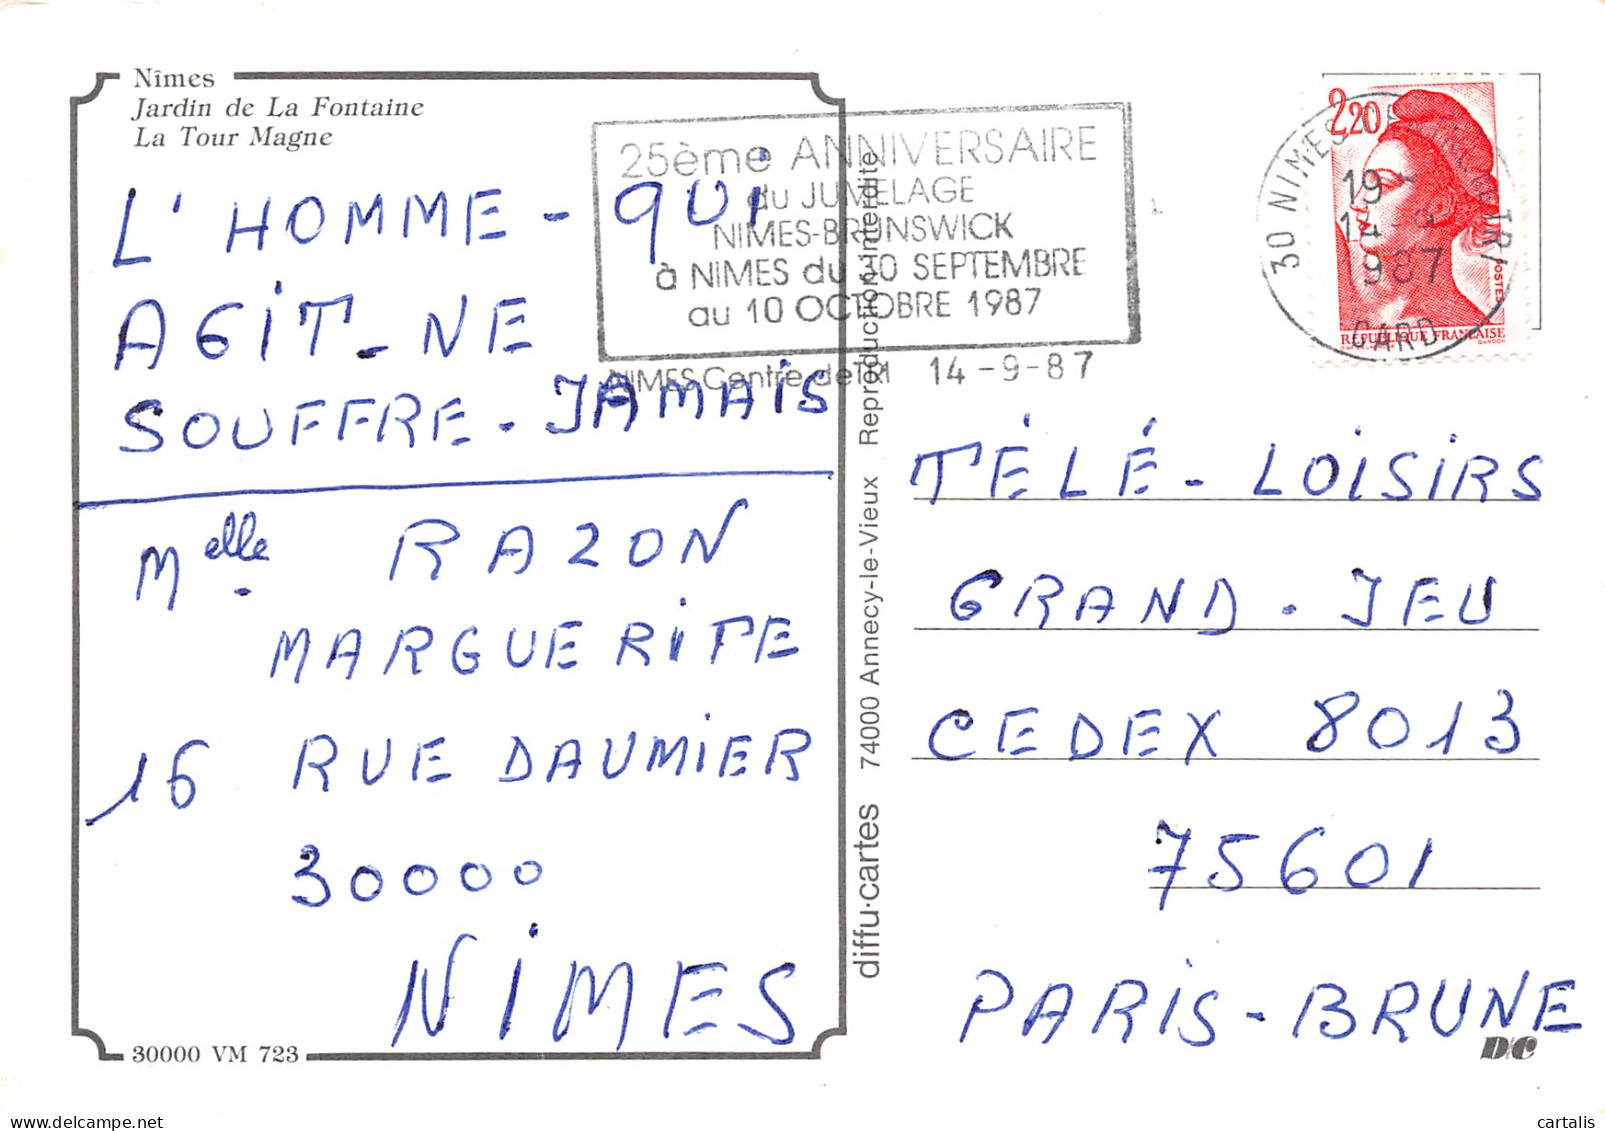 Nîmes
Jardin de La Fontaine
La Tour Magne
L'HOMME - QUI
AGIT - NE
SOUFFRE - JAMAIS
Melle RAZON
MARGUERITE
16 RUE DAUMIER
30000
NIMES
30000 VM 723
25ème ANNIVERSAIRE
du JUMELAGE
NIMES-BRUNSWICK
à NIMES du 10 SEPTEMBRE
au 10 OCTOBRE 1987
NIMES Centre de Tri 14-9-87
diffu·cartes 74000 Annecy-le-Vieux Reproduction interdite
2,20
POSTES
REPUBLIQUE FRANÇAISE
GANDON
30 NIMES TRI
19
14-9
1987
GARD
TÉLÉ - LOISIRS
GRAND - JEU
CEDEX 8013
75601
PARIS - BRUNE
D/C
cartalis